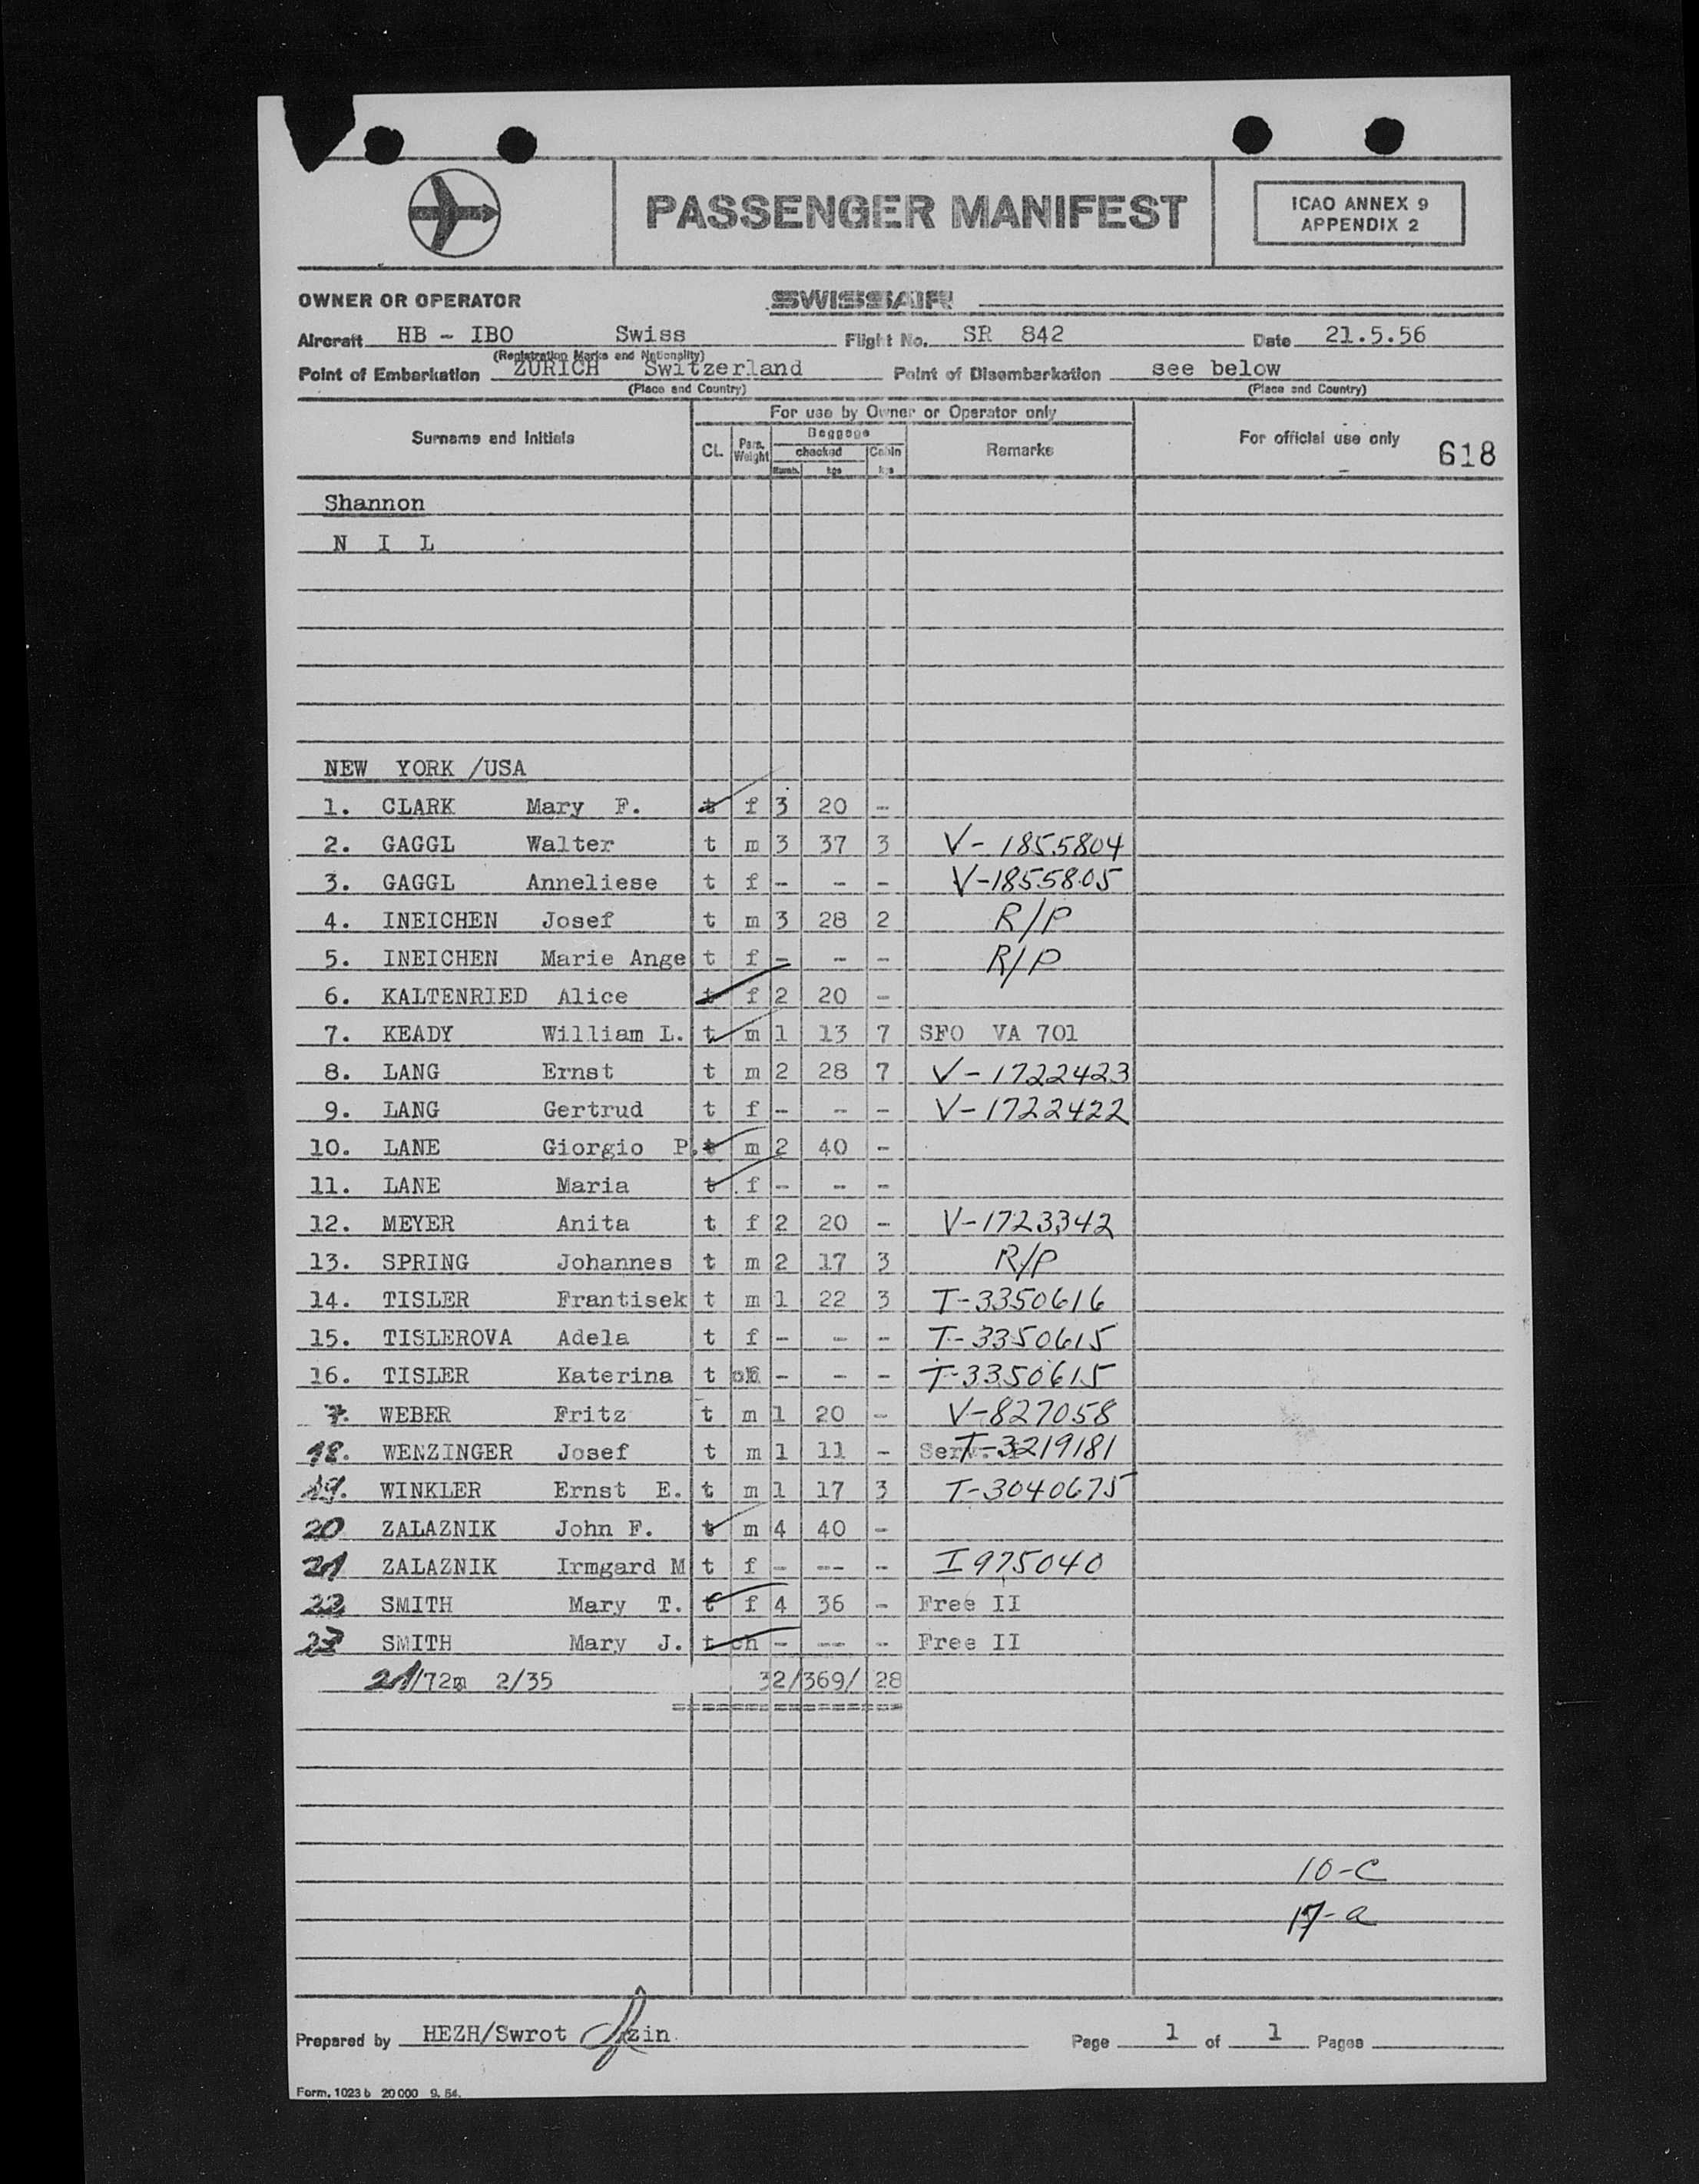 PASSENGER MANIFEST
ICAO ANNEX 9
APPENDIX 2
OWNER OR OPERATOR SWISSAIR
Aircraft HB - IBO Swiss Flight No. SR 842 Date 21.5.56
(Registration Marks and Nationality)
Point of Embarkation ZURICH Switzerland Point of Disembarkation see below
(Place and Country) (Place and Country)
For use by Owner or Operator only
Surname and Initials CL. Pass. Weight Baggage checked Numb. kgs Cabin kgs Remarks For official use only 618
Shannon
N I L
NEW YORK /USA
1. CLARK Mary F. t f 3 20 -
2. GAGGL Walter t m 3 37 3 V-1855804
3. GAGGL Anneliese t f - - - V-1855805
4. INEICHEN Josef t m 3 28 2 R/P
5. INEICHEN Marie Ange t f - - - R/P
6. KALTENRIED Alice t f 2 20 -
7. KEADY William L. t m 1 13 7 SFO VA 701
8. LANG Ernst t m 2 28 7 V-1722423
9. LANG Gertrud t f - - - V-1722422
10. LANE Giorgio P. t m 2 40 -
11. LANE Maria t f - - -
12. MEYER Anita t f 2 20 - V-1723342
13. SPRING Johannes t m 2 17 3 R/P
14. TISLER Frantisek t m 1 22 3 T-3350616
15. TISLEROVA Adela t f - - - T-3350615
16. TISLER Katerina t ch - - - T-3350615
7. WEBER Fritz t m 1 20 - V-827058
18. WENZINGER Josef t m 1 11 - T-3219181
19. WINKLER Ernst E. t m 1 17 3 T-3040675
20 ZALAZNIK John F. t m 4 40 -
21 ZALAZNIK Irmgard M t f - --- - I 975040
22 SMITH Mary T. t f 4 36 - Free II
23 SMITH Mary J. t ch - --- - Free II
21/72m 2/35 32/369/ 28
==================
10-C
17-a
Prepared by HEZH/Swrot zin Page 1 of 1 Pages
Form. 1023 b 20 000 9. 54.